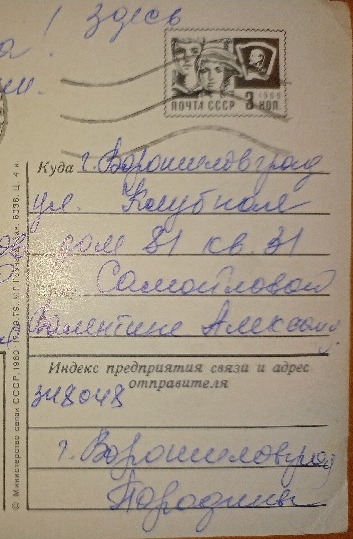 Здесь
а!
ПОЧТА СССР 3 КОП
1966
Куда г. Ворошиловград
ул. Клубная
дом 81 кв. 31
Самойловой
Валентине Александ.
Индекс предприятия связи и адрес
отправителя
348048
г. Ворошиловград
© Министерство связи СССР, 1980